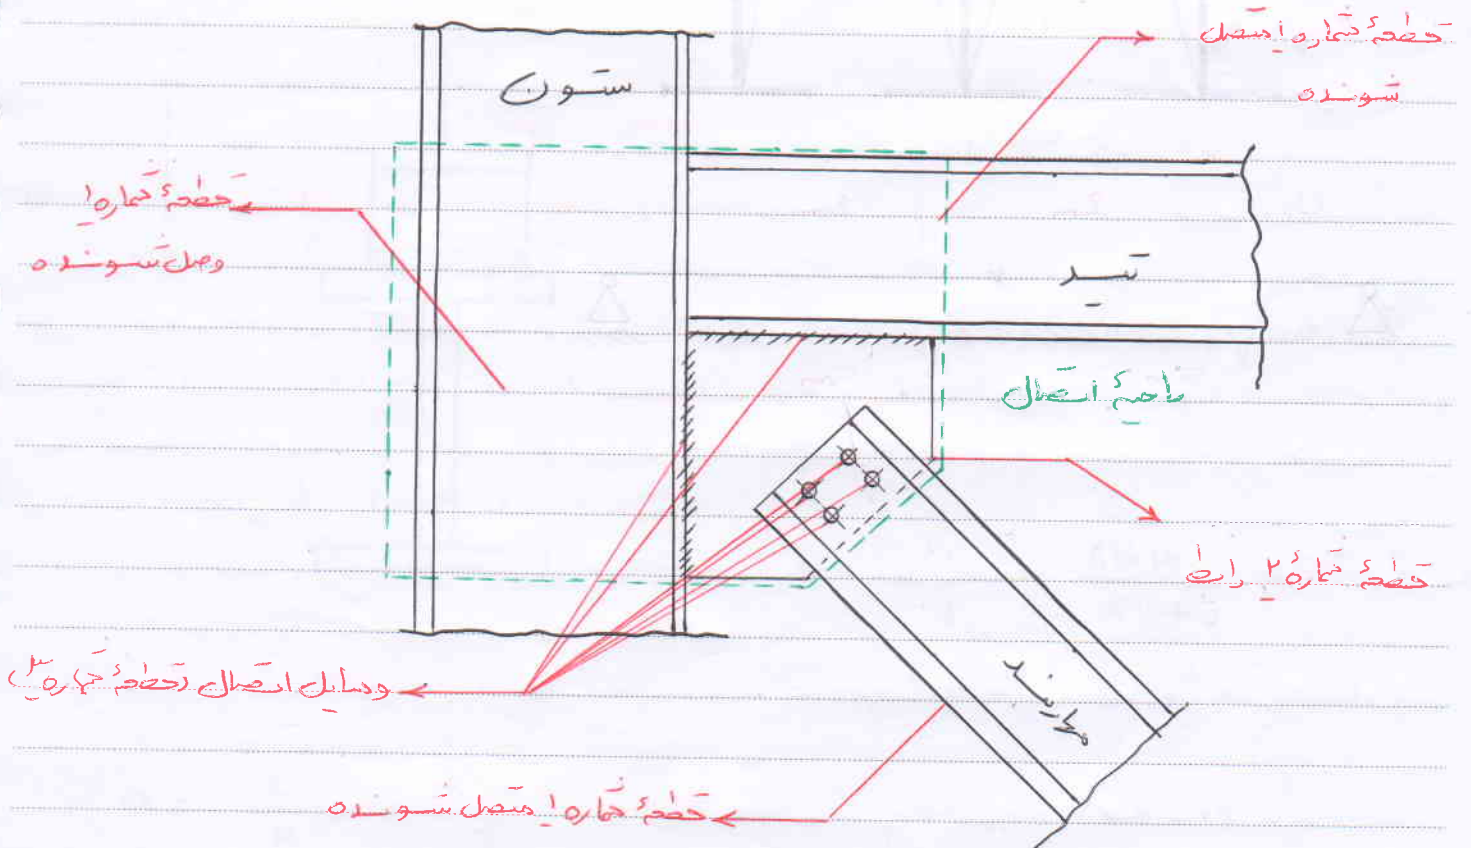 قطعهٔ شماره ۱ متصل
شونده
ستون
قطعهٔ شماره ۱
وصل شونده
تیر
ناحیهٔ اتصال
قطعهٔ شمارهٔ ۲ رابط
مهاربند
وسایل اتصال (قطعهٔ شماره ۳)
قطعهٔ شماره ۱ متصل شونده